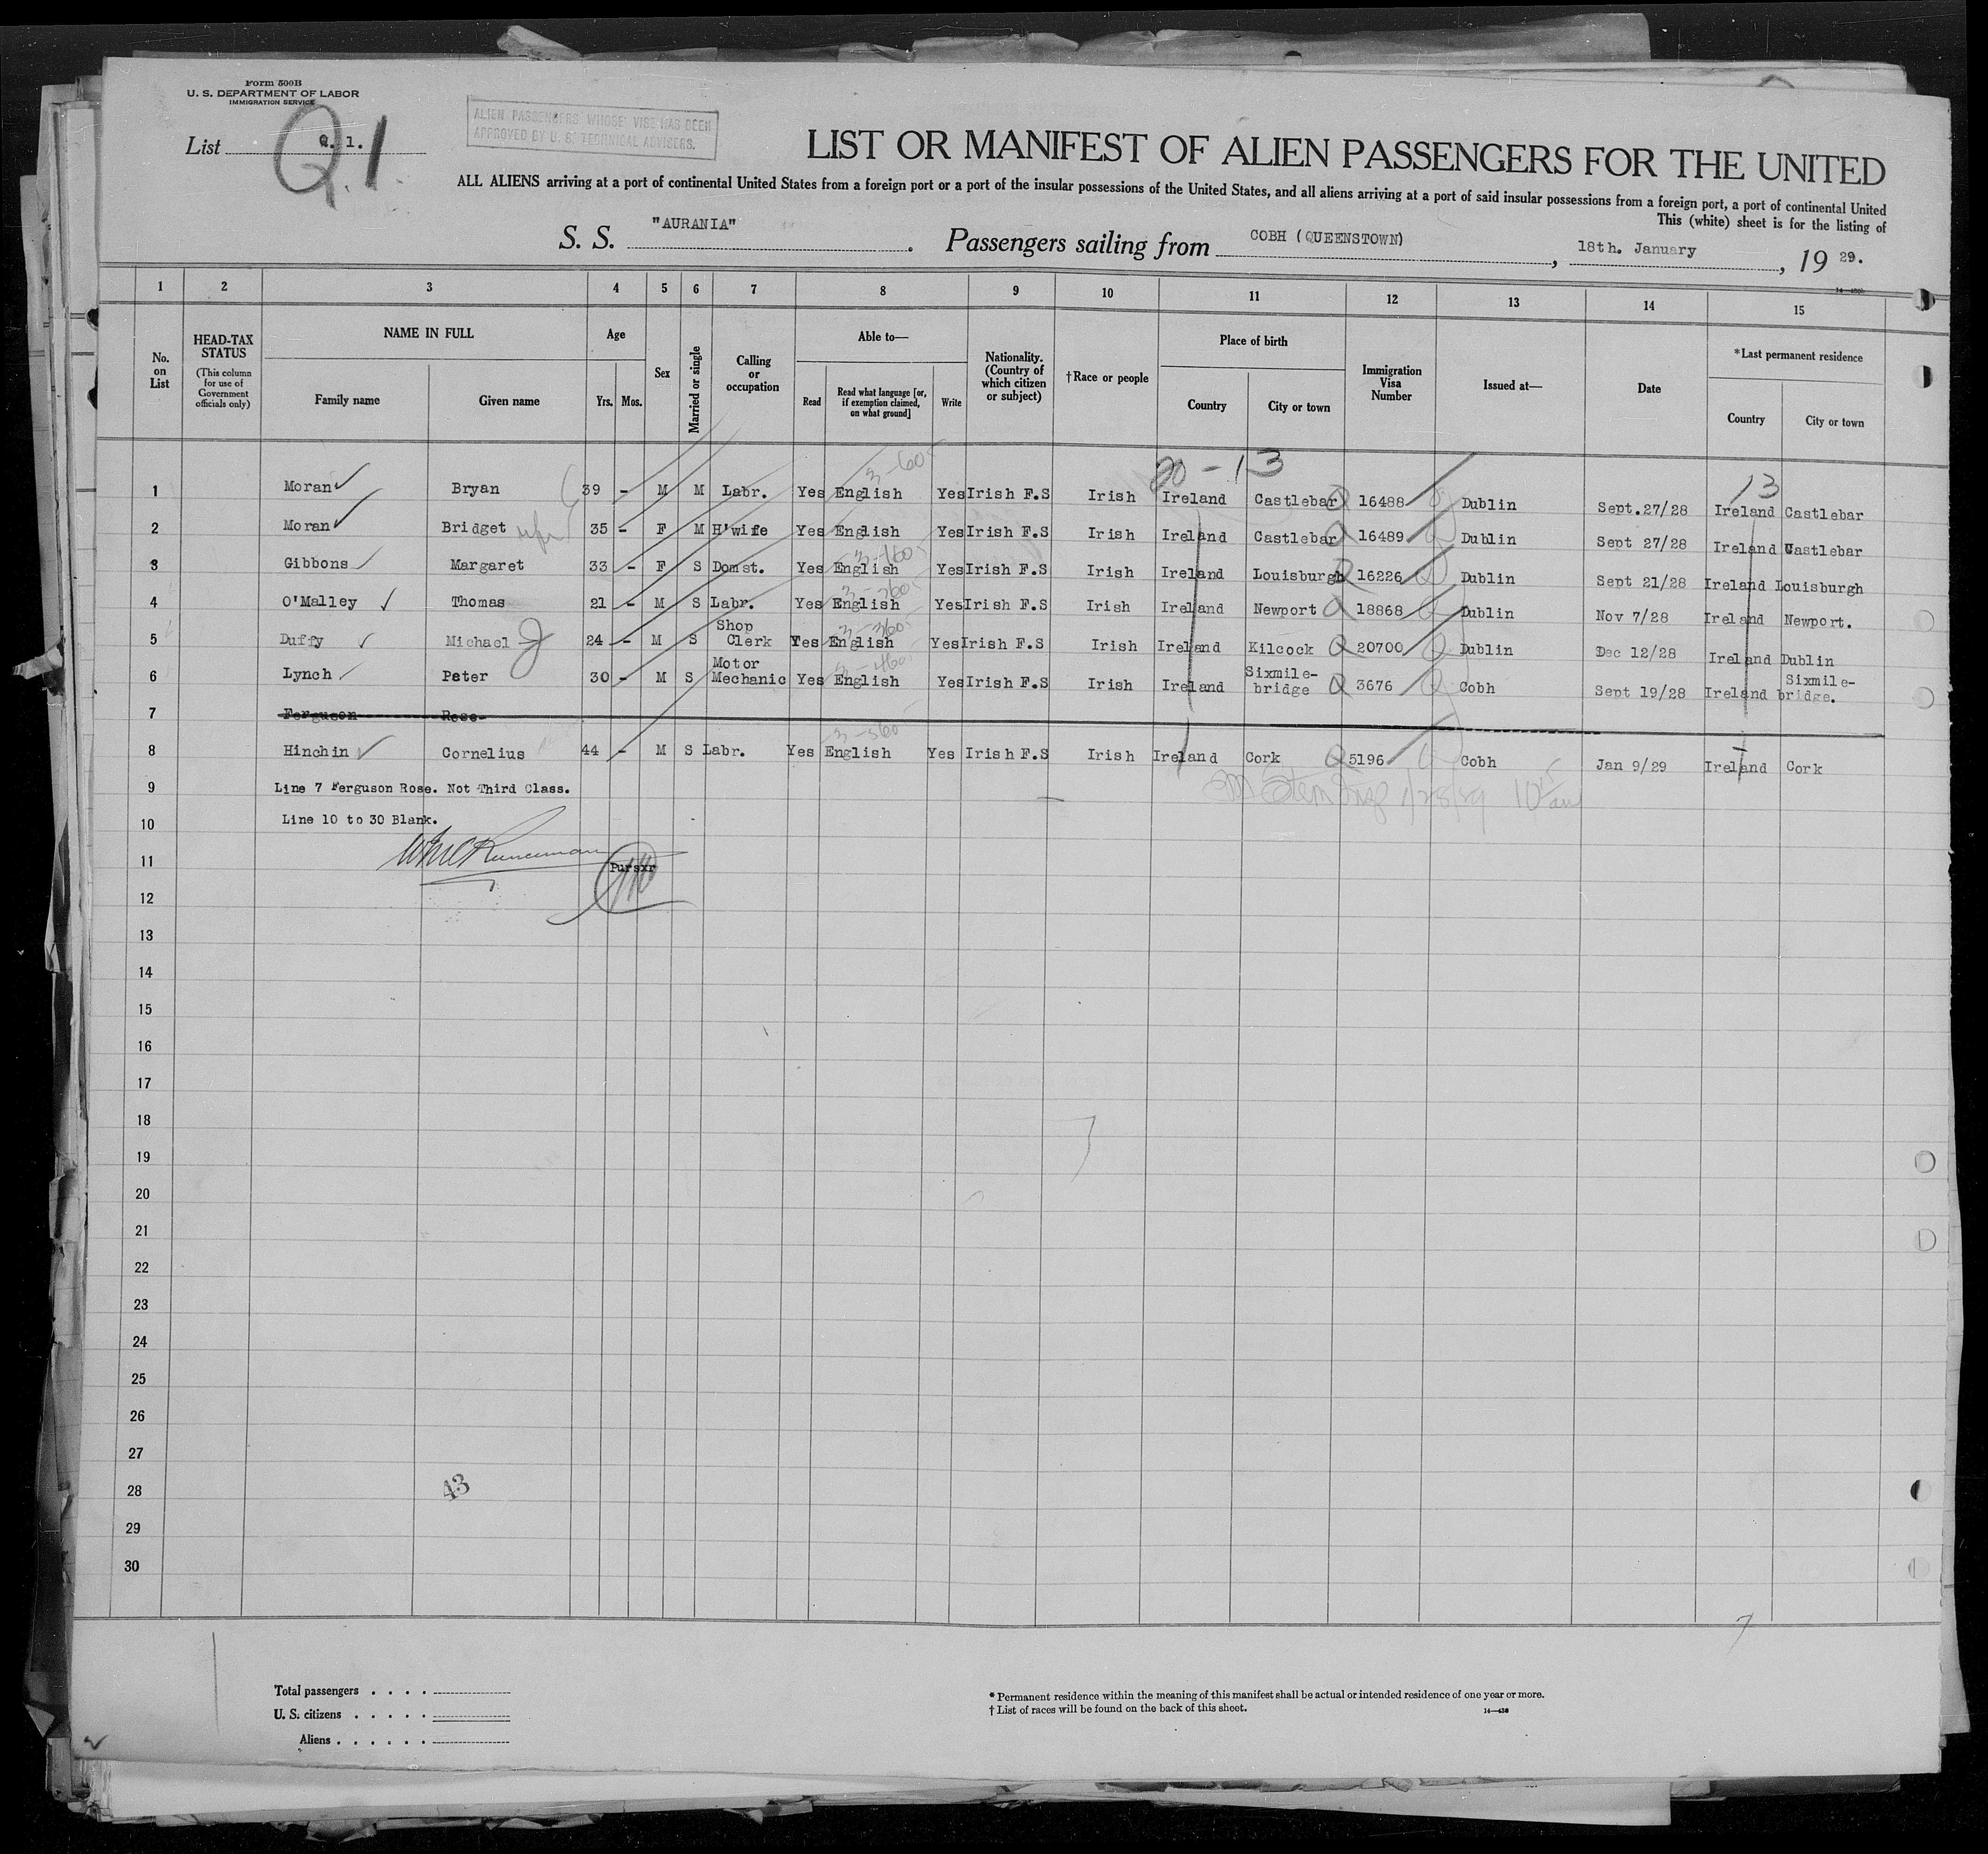 Form 500B
U. S. DEPARTMENT OF LABOR
IMMIGRATION SERVICE
List Q. 1.
Q.1.
ALIEN PASSENGERS WHOSE VISE HAS BEEN
APPROVED BY U. S. TECHNICAL ADVISERS.
LIST OR MANIFEST OF ALIEN PASSENGERS FOR THE UNITED
ALL ALIENS arriving at a port of continental United States from a foreign port or a port of the insular possessions of the United States, and all aliens arriving at a port of said insular possessions from a foreign port, a port of continental United
This (white) sheet is for the listing of
S. S. "AURANIA". Passengers sailing from COBH (QUEENSTOWN), 18th. January, 19 29.
1 2 3 4 5 6 7 8 9 10 11 12 13 14 15
No. on List
HEAD-TAX STATUS
(This column for use of Government officials only)
NAME IN FULL
Family name Given name
Age
Yrs. Mos.
Sex
Married or single
Calling or occupation
Able to—
Read
Read what language [or, if exemption claimed, on what ground]
Write
Nationality. (Country of which citizen or subject)
†Race or people
Place of birth
Country City or town
Immigration Visa Number
Issued at—
Date
*Last permanent residence
Country City or town
20-13
13
3-60
1 Moran Bryan 39 - M M Labr. Yes English Yes Irish F.S Irish Ireland Castlebar 16488 Dublin Sept.27/28 Ireland Castlebar
2 Moran Bridget 35 - F M H'wife Yes English Yes Irish F.S Irish Ireland Castlebar 16489 Dublin Sept 27/28 Ireland Castlebar
3 Gibbons Margaret 33 - F S Domst. Yes English Yes Irish F.S Irish Ireland Louisburgh 16226 Dublin Sept 21/28 Ireland Louisburgh
4 O'Malley Thomas 21 - M S Labr. Yes English Yes Irish F.S Irish Ireland Newport 18868 Dublin Nov 7/28 Ireland Newport.
5 Duffy Michael 24 - M S Shop Clerk Yes English Yes Irish F.S Irish Ireland Kilcock 20700 Dublin Dec 12/28 Ireland Dublin
6 Lynch Peter 30 - M S Motor Mechanic Yes English Yes Irish F.S Irish Ireland Sixmile-bridge 3676 Cobh Sept 19/28 Ireland Sixmile-bridge.
7 Ferguson Rose
8 Hinchin Cornelius 44 - M S Labr. Yes English Yes Irish F.S Irish Ireland Cork 5196 Cobh Jan 9/29 Ireland Cork
9 Line 7 Ferguson Rose. Not Third Class.
10 Line 10 to 30 Blank.
11 Pursxr
12
13
14
15
16
17
18
19
20
21
22
23
24
25
26
27
28
43
29
30
Total passengers . . . .
U. S. citizens . . . . .
Aliens . . . . . .
* Permanent residence within the meaning of this manifest shall be actual or intended residence of one year or more.
† List of races will be found on the back of this sheet.
14—438